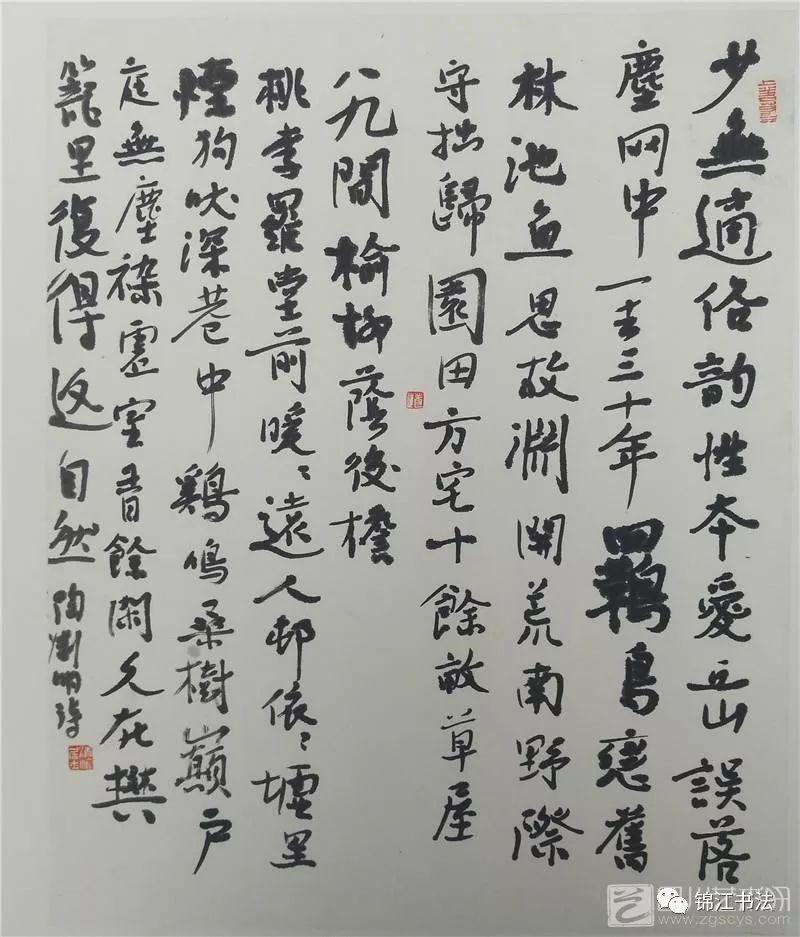 少無適俗韵性本愛丘山誤落
塵网中一去三十年羁鳥戀舊
林池魚思故淵開荒南野際
守拙歸園田方宅十餘畝草屋
八九間榆柳蔭後檐
桃李羅堂前曖〻遠人邨依〻墟里
煙狗吠深巷中鷄鳴桑樹巔户
庭無塵襍虛室有餘閑久在樊
籠里復得返自然陶淵明詩
锦江书法
www.zgscys.com